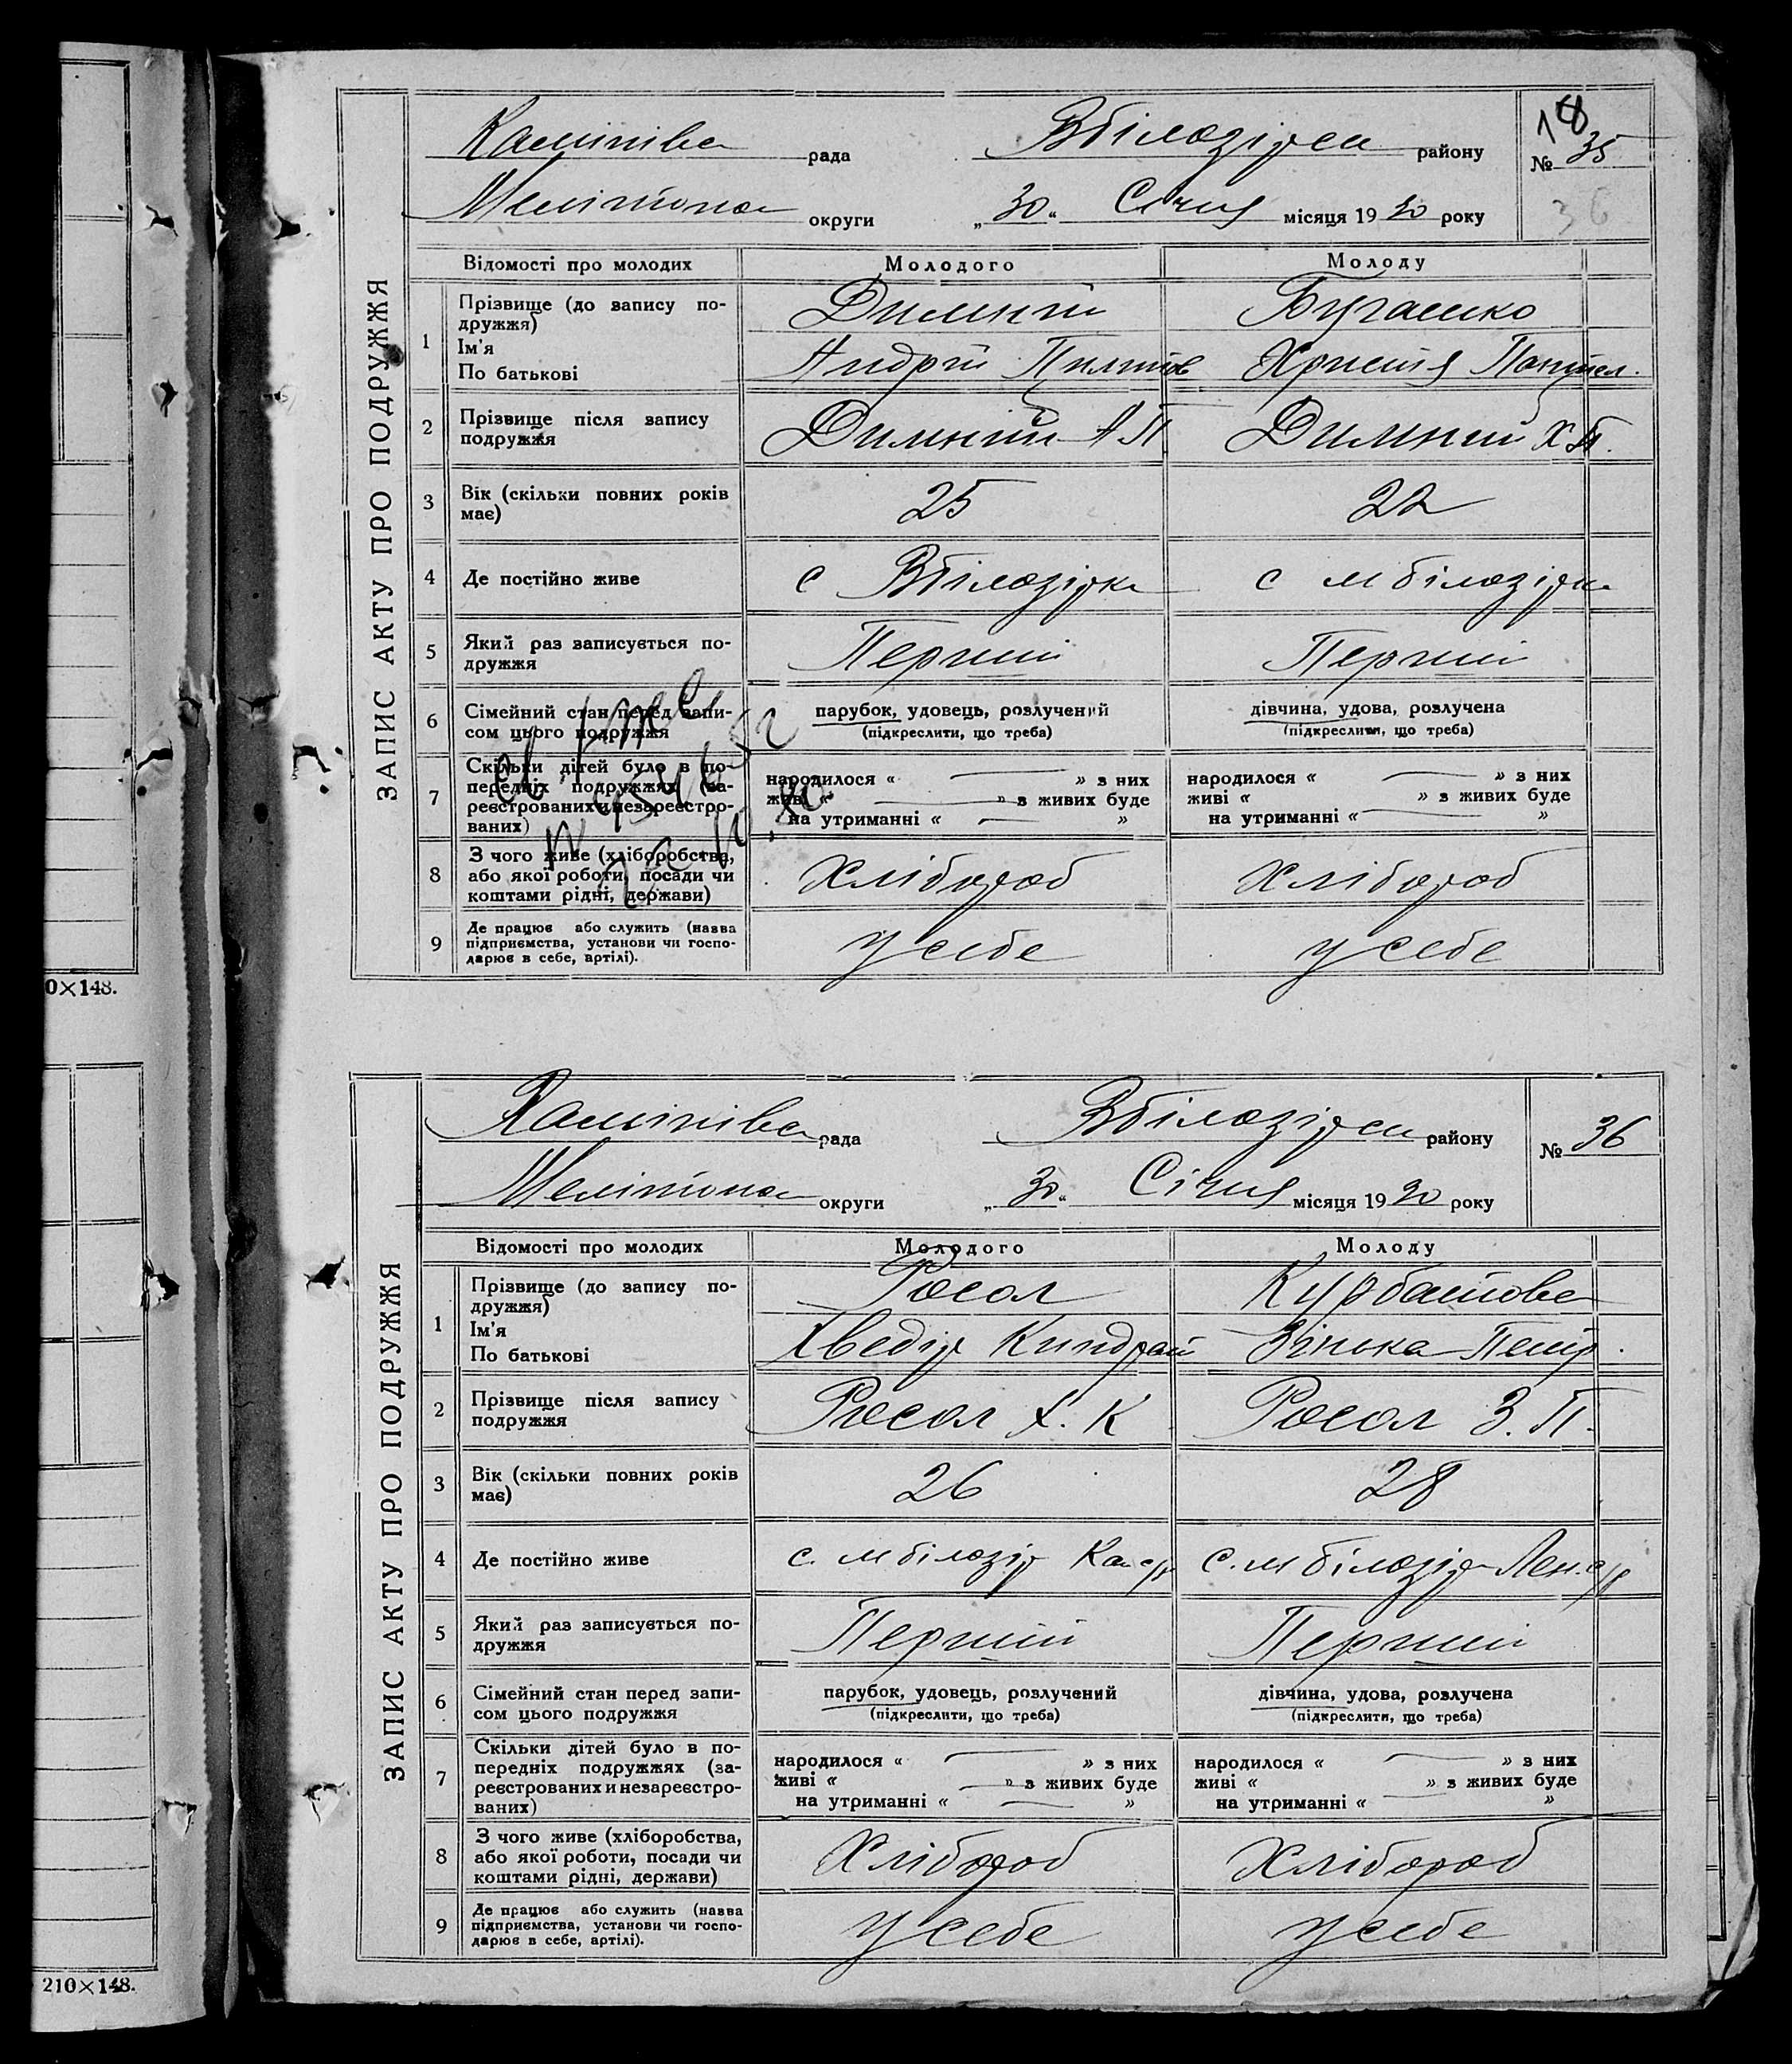 18
рада Вбілозірси району № 35
Мелітопол округи „30“ Січня місяця 1930 року
36
ЗАПИС АКТУ ПРО ПОДРУЖЖЯ
Відомості про молодих Молодого Молоду
1 Прізвище (до запису по-
дружжя)
Ім'я
По батькові
Димній
Андрій
Христя
2 Прізвище після запису
подружжя
Димній А П Димній Х П.
3 Вік (скільки повних років
має)
25 22
4 Де постійно живе с Вбілозірка с м білозірка
5 Який раз записується по-
дружжя
Перший Перший
6 Сімейний стан перед запи-
сом цього подружжя
парубок, удовець, розлучений
(підкреслити, що треба)
дівчина, удова, розлучена
(підкреслити, що треба)
7 Скільки дітей було в по-
передніх подружжях (за-
реєстрованих и незареєстро-
ваних)
народилося « » з них
живі « » з живих буде
на утриманні « »
народилося « » з них
живі « » з живих буде
на утриманні « »
8 З чого живе (хліборобства,
або якої роботи, посади чи
коштами рідні, держави)
Хлібороб Хлібороб
9 Де працює або служить (назва
підприємства, установи чи госпо-
дарює в себе, артілі).
у себе у себе
0×148.
рада Вбілозірси району № 36
Мелітопол округи „30“ Січня місяця 1930 року
ЗАПИС АКТУ ПРО ПОДРУЖЖЯ
Відомості про молодих Молодого Молоду
1 Прізвище (до запису по-
дружжя)
Ім'я
По батькові
Росол Курбатова
Хведір Киндрат Зінька Петр.
2 Прізвище після запису
подружжя
Росол Х. К Росол З. П.
3 Вік (скільки повних років
має)
26 28
4 Де постійно живе с. м білозір Кас/р с. м білозір Лен.с/р
5 Який раз записується по-
дружжя
Перший Перший
6 Сімейний стан перед запи-
сом цього подружжя
парубок, удовець, розлучений
(підкреслити, що треба)
дівчина, удова, розлучена
(підкреслити, що треба)
7 Скільки дітей було в по-
передніх подружжях (за-
реєстрованих и незареєстро-
ваних)
народилося « » з них
живі « » з живих буде
на утриманні « »
народилося « » з них
живі « » з живих буде
на утриманні « »
8 З чого живе (хліборобства,
або якої роботи, посади чи
коштами рідні, держави)
Хлібороб Хлібороб
9 Де працює або служить (назва
підприємства, установи чи госпо-
дарює в себе, артілі).
у себе у себе
210×148.